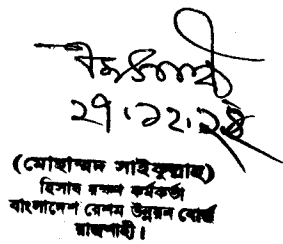 ২৭.১২.২৪
(মোহাম্মদ সাইফুল্লাহ)
হিসাব রক্ষণ কর্মকর্তা
বাংলাদেশ রেশম উন্নয়ন বোর্ড
রাজশাহী।